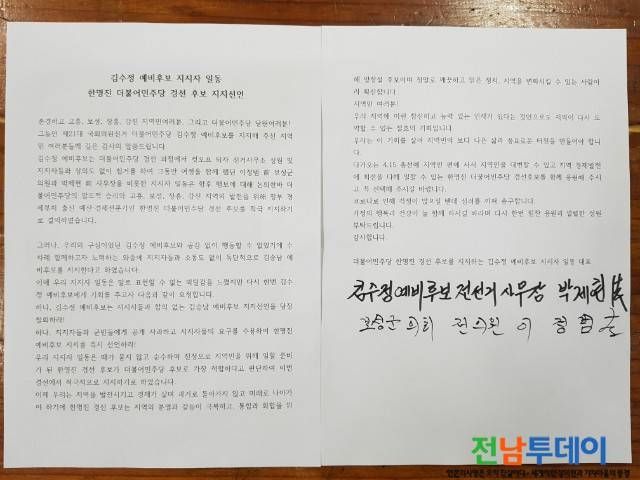 김수정 예비후보 지지자 일동
한명진 더불어민주당 경선 후보 지지선언
존경하고 고흥, 보성, 장흥, 강진 지역민여러분!, 그리고 더불어민주당 당원여러분!
그동안 제21대 국회의원선거 더불어민주당 김수정 예비후보를 지지해 주신 지역
민 여러분들께 깊은 감사의 말씀드립니다.
김수정 예비후보는 더불어민주당 경선 과정에서 컷오프 되자 선거사무소 임원 및
지지자들과 상의도 없이 칩거를 하여 그동안 여정을 함께 했던 이정범 前 보성군
의원과 박제현 前 사무장을 비롯한 지지자 일동은 향후 행보에 대해 논의한바 더
불어민주당의 압도적 승리와 고흥, 보성, 장흥, 강진 지역의 발전을 위해 정부 경
제부처 출신 예산·경제전문가인 한명진 더불어민주당 경선 후보를 적극 지지하기
로 결의하였습니다.
그러나, 우리의 구심이었던 김수정 예비후보와 공감 없이 행동할 수 없었기에 수
차례 함께하고자 노력하는 와중에 지지자들과 소통도 없이 독단적으로 김승남 예
비후보를 지지한다고 하였습니다.
이에 우리 지지자 일동은 말로 표현할 수 없는 배신감을 느꼈지만 다시 한번 김수
정 예비후보에게 기회를 주고자 다음과 같이 요청합니다.
하나, 김수정 예비후보는 지지자들과 합의 없는 김승남 예비후보 지지선언을 당장
철회하라!
하나, 지지자들과 군민들에게 공개 사과하고 지지자들의 요구를 수용하여 한명진
예비후보 지지를 즉시 선언하라!
우리 지지자 일동은 때가 묻지 않고 순수하며 진정으로 지역민을 위해 일할 준비
가 된 한명진 경선 후보가 더불어민주당 후보로 가장 적합하다고 판단하여 이번
경선에서 적극적으로 지지하기로 하였습니다.
이제 우리는 지역을 발전시키고 경제가 살며 과거로 돌아가지 않고 미래로 나아가
야 하기에 한명진 경선 후보는 지역의 분열과 갈등이 극복하고, 통합과 화합을 위
해 앞장설 후보이며 진정으로 깨끗하고 맑은 정치, 지역을 변화시킬 수 있는 사람이
라 확신합니다.
지역민 여러분!
우리 지역에 이런 참신하고 능력 있는 인재가 있다는 것만으로도 지역이 다시 도
약할 수 있는 절호의 기회입니다.
우리는 이 기회를 살려 지역민의 보다 나은 삶과 풍요로운 터전을 만들어야 합니
다.
다가오는 4.15 총선에 지역민 편에 서서 지역민을 대변할 수 있고 지역 경제발전
에 최선을 다해 일할 수 있는 한명진 더불어민주당 경선후보를 함께 응원해 주시
고 꼭 선택해 주시길 바랍니다.
코로나로 인해 걱정이 많으실 텐데 심려를 끼쳐 송구합니다.
가정의 행복과 건강이 늘 함께 하시길 바라며 다시 한번 힘찬 응원과 열렬한 성원
부탁드립니다.
감사합니다.
더불어민주당 한명진 경선 후보를 지지하는 김수정 예비후보 지지자 일동 대표
김수정예비후보 전선거사무장 박제현
보성군의회 전의원 이정범
전남투데이